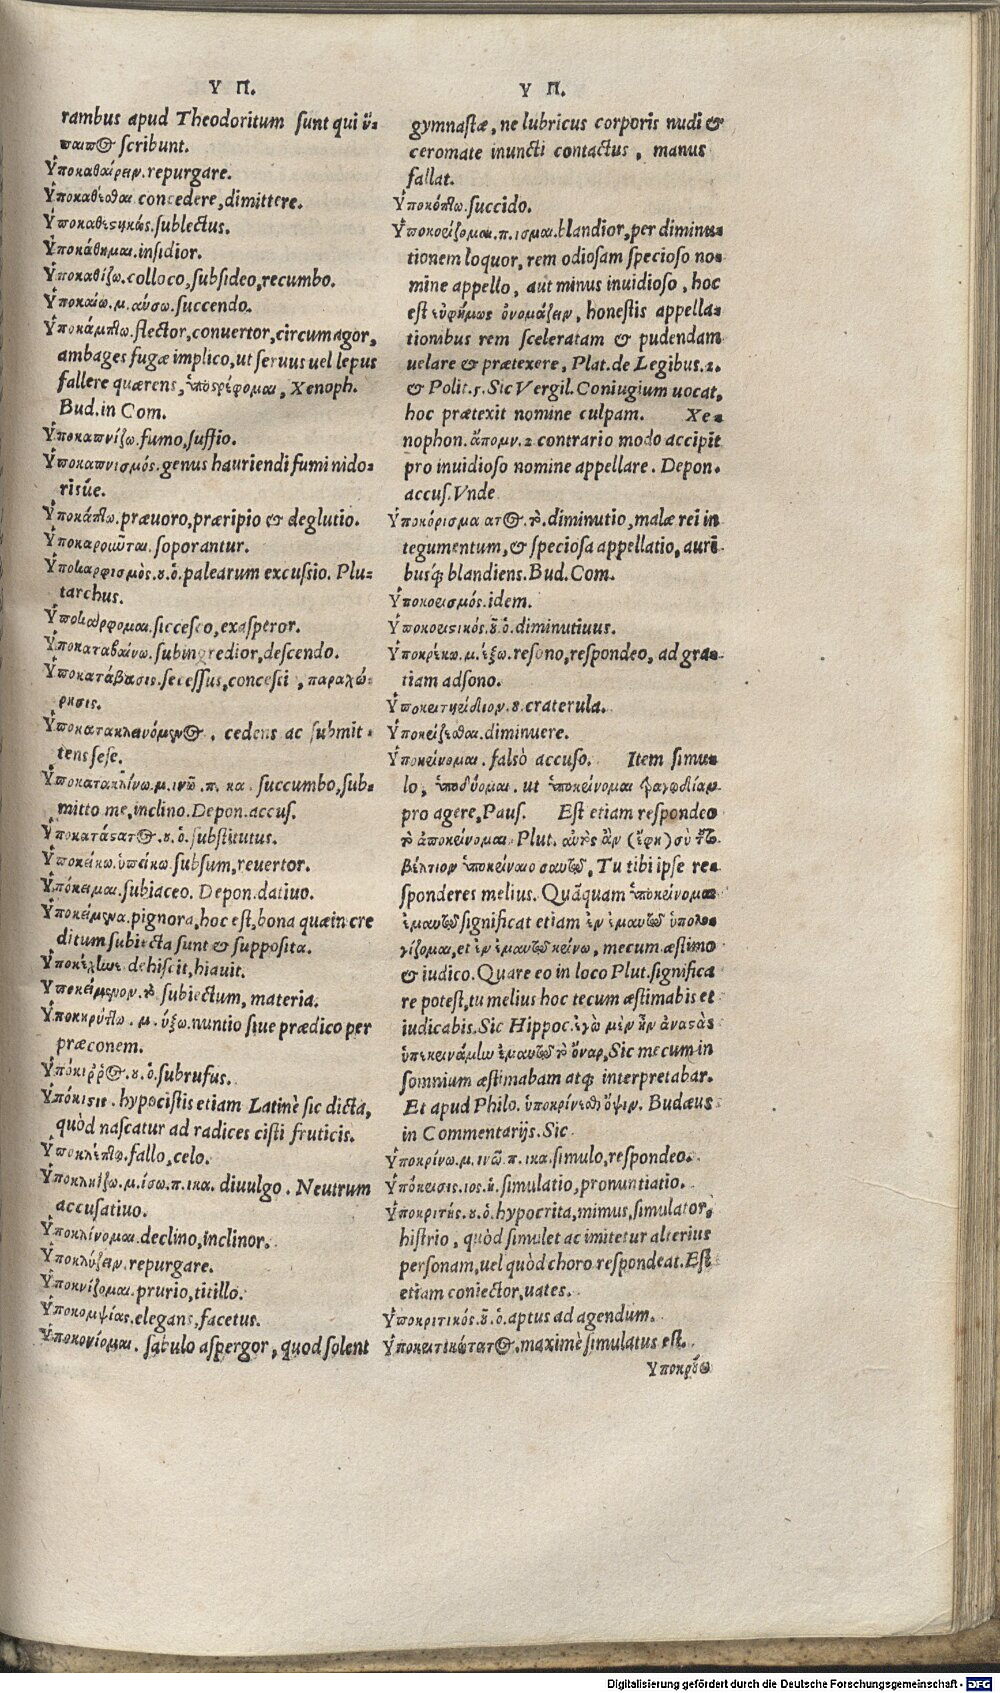 Υ Π.
rambus apud Theodoritum sunt qui ὕ-
παιπος scribunt.
Ὑποκαθαίρειν. repurgare.
Ὑποκαθίεσθαι concedere, dimittere.
Ὑποκαθεστηκώς. sublectus.
Ὑποκάθημαι. insidior.
Ὑποκαθίζω. colloco, subsideo, recumbo.
Ὑποκαίω. μ. αύσω. succendo.
Ὑποκάμπτω. flector, conuertor, circumagor,
ambages fugæ implico, ut seruus uel lepus
fallere quærens, ὑποστρέφομαι, Xenoph.
Bud. in Com.
Ὑποκαπνίζω. fumo, suffio.
Ὑποκαπνισμός. genus hauriendi fumi nido-
risúe.
Ὑποκάπτω. præuoro, præripio & deglutio.
Ὑποκαροῦνται. soporantur.
Ὑποκαρφισμὸς. ου. ὁ. palearum excussio. Plu-
tarchus.
Ὑποκάρφομαι. siccesco, exasperor.
Ὑποκαταβαίνω. subingredior, descendo.
Ὑποκατάβασις. secessus, concessi, παραχώ-
ρησις.
Ὑποκατακλινόμενος. cedens ac submit-
tens sese.
Ὑποκατακλίνω. μ. ινῶ. π. κα. succumbo, sub-
mitto me, inclino. Depon. accus.
Ὑποκατάστατος. ου. ὁ. substitutus.
Ὑποκείκω. ὑπείκω subsum, reuertor.
Ὑπόκειμαι. subiaceo. Depon. datiuo.
Ὑποκείμενα. pignora, hoc est, bona quæ in cre
ditum subiecta sunt & supposita.
Ὑποκέχηνε dehiscit, hiauit.
Ὑποκείμενον. τὸ subiectum, materia.
Ὑποκηρύττω. μ. ύξω. nuntio siue prædico per
præconem.
Ὑπόκιῤῥος. ου. ὁ. subrufus.
Ὑπόκιστις. hypocistis etiam Latinè sic dicta,
quòd nascatur ad radices cisti fruticis.
Ὑποκλέπτω. fallo, celo.
Ὑποκληίζω. μ. ίσω. π. ικα. diuulgo. Neutrum
accusatiuo.
Ὑποκλίνομαι. declino, inclinor.
Ὑποκλύζειν. repurgare.
Ὑποκνίζομαι. prurio, titillo.
Ὑποκομψίας. elegans, facetus.
Ὑποκονίομαι. sabulo aspergor, quod solent
Υ Π.
gymnastæ, ne lubricus corporis nudi &
ceromate inuncti contactus, manus
fallat.
Ὑποκόπτω. succido.
Ὑποκορίζομαι. π. ισμαι. blandior, per diminu-
tionem loquor, rem odiosam specioso no-
mine appello, aut minus inuidioso, hoc
est εὐφήμως ὀνομάζειν, honestis appella-
tionibus rem sceleratam & pudendam
uelare & prætexere, Plat. de Legibus. 2.
& Polit. 5. Sic Vergil. Coniugium uocat,
hoc prætexit nomine culpam. Xe-
nophon. ἀπομν. 2 contrario modo accipit
pro inuidioso nomine appellare. Depon.
accus. Vnde
Ὑποκόρισμα ατος. τὸ. diminutio, malæ rei in
tegumentum, & speciosa appellatio, auri-
busq́; blandiens. Bud. Com.
Ὑποκορισμός. idem.
Ὑποκοριστικός. οῦ. ὁ. diminutiuus.
Ὑποκρέκω. μ. έξω. resono, respondeo, ad gra-
tiam adsono.
Ὑποκρητηρίδιον. ου. craterula.
Ὑποκρίζεσθαι. diminuere.
Ὑποκρίνομαι. falsò accuso. Item simu-
lo, ὑποδύομαι. ut ὑποκρίνομαι τραγῳδίαν.
pro agere, Paus. Est etiam respondeo
τὸ ἀποκρίνομαι Plut. αὐτὸς ἂν (ἔφη) σὺ τοῦτο
βέλτιον ὑποκρίναιο σαυτῷ, Tu tibi ipse re-
sponderes melius. Quãquam ὑποκρίνομαι
ἐμαυτῷ significat etiam ἐν ἐμαυτῷ ὑπολο-
γίζομαι, et ἐν ἐμαυτῷ κρίνω, mecum æstimo
& iudico. Quare eo in loco Plut. significa
re potest, tu melius hoc tecum æstimabis et
iudicabis. Sic Hippoc. ἐγὼ μὲν ἦν ἀναστὰς
ὑπεκρινάμην ἐμαυτῷ τὸ ὄναρ, Sic mecum in
somnium æstimabam atq; interpretabar.
Et apud Philo. ὑποκρίνεσθ ὄψιν. Budæus
in Commentarijs. Sic
Ὑποκρίνω. μ. ινῶ. π. ικα. simulo, respondeo.
Ὑπόκρισις. ιος. ἡ. simulatio, pronuntiatio.
Ὑποκριτής. ου. ὁ. hypocrita, mimus, simulator,
histrio, quòd simulet ac imitetur alterius
personam, uel quòd choro respondeat. Est
etiam coniector, uates.
Ὑποκριτικός. οῦ. ὁ. aptus ad agendum.
Ὑποκριτικώτατος. maximè simulatus est.
Ὑποκρού
Digitalisierung gefördert durch die Deutsche Forschungsgemeinschaft - DFG